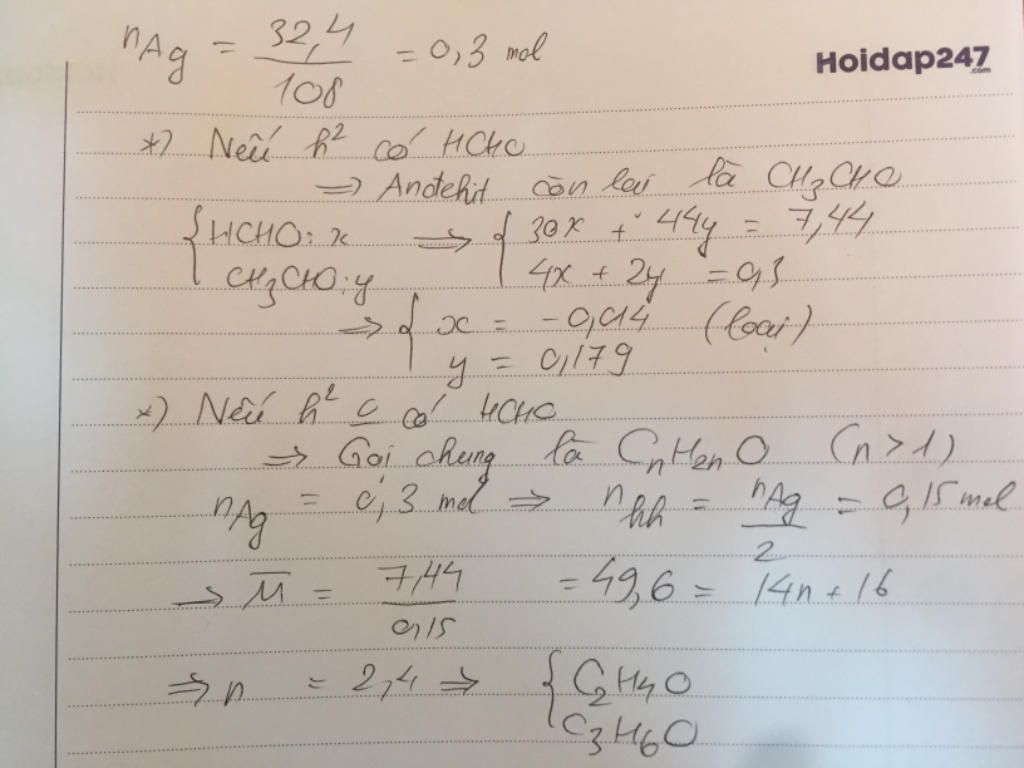 nAg = 32,4 / 108 = 0,3 mol
Hoidap247
.com
*) Nếu h² có HCHO
=> Anđehit còn lại là CH3CHO
{ HCHO: x => { 30x + 44y = 7,44
CH3CHO: y 4x + 2y = 0,3
=> { x = -0,014 (loại)
y = 0,179
*) Nếu h² c có HCHO
=> Gọi chung là CnH2nO (n > 1)
nAg = 0,3 mol => nhh = nAg / 2 = 0,15 mol
→ M̅ = 7,44 / 0,15 = 49,6 = 14n + 16
=> n = 2,4 => { C2H4O
C3H6O